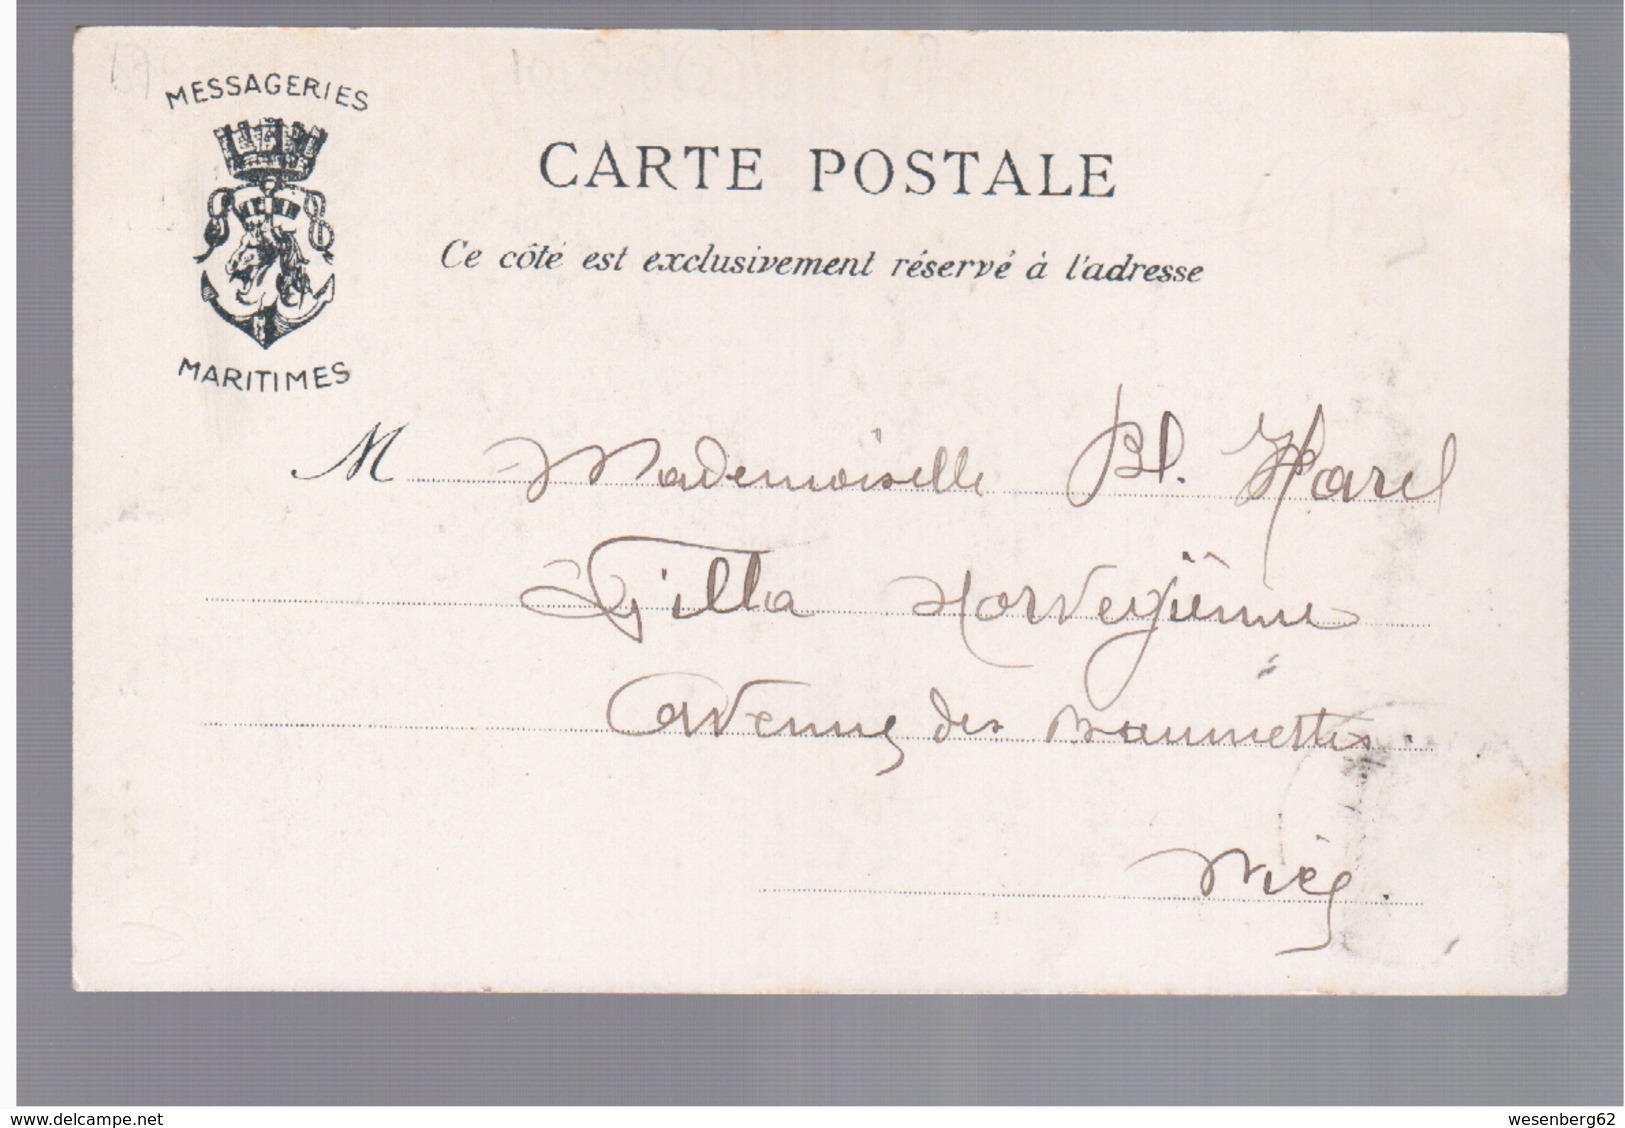 MESSAGERIES
MARITIMES
CARTE POSTALE
Ce côté est exclusivement réservé à l'adresse
M Mademoiselle Bl. Harel
Villa Norvegiènne
Avenue des Baumettes.
Nice.
www.delcampe.net
wesenberg62